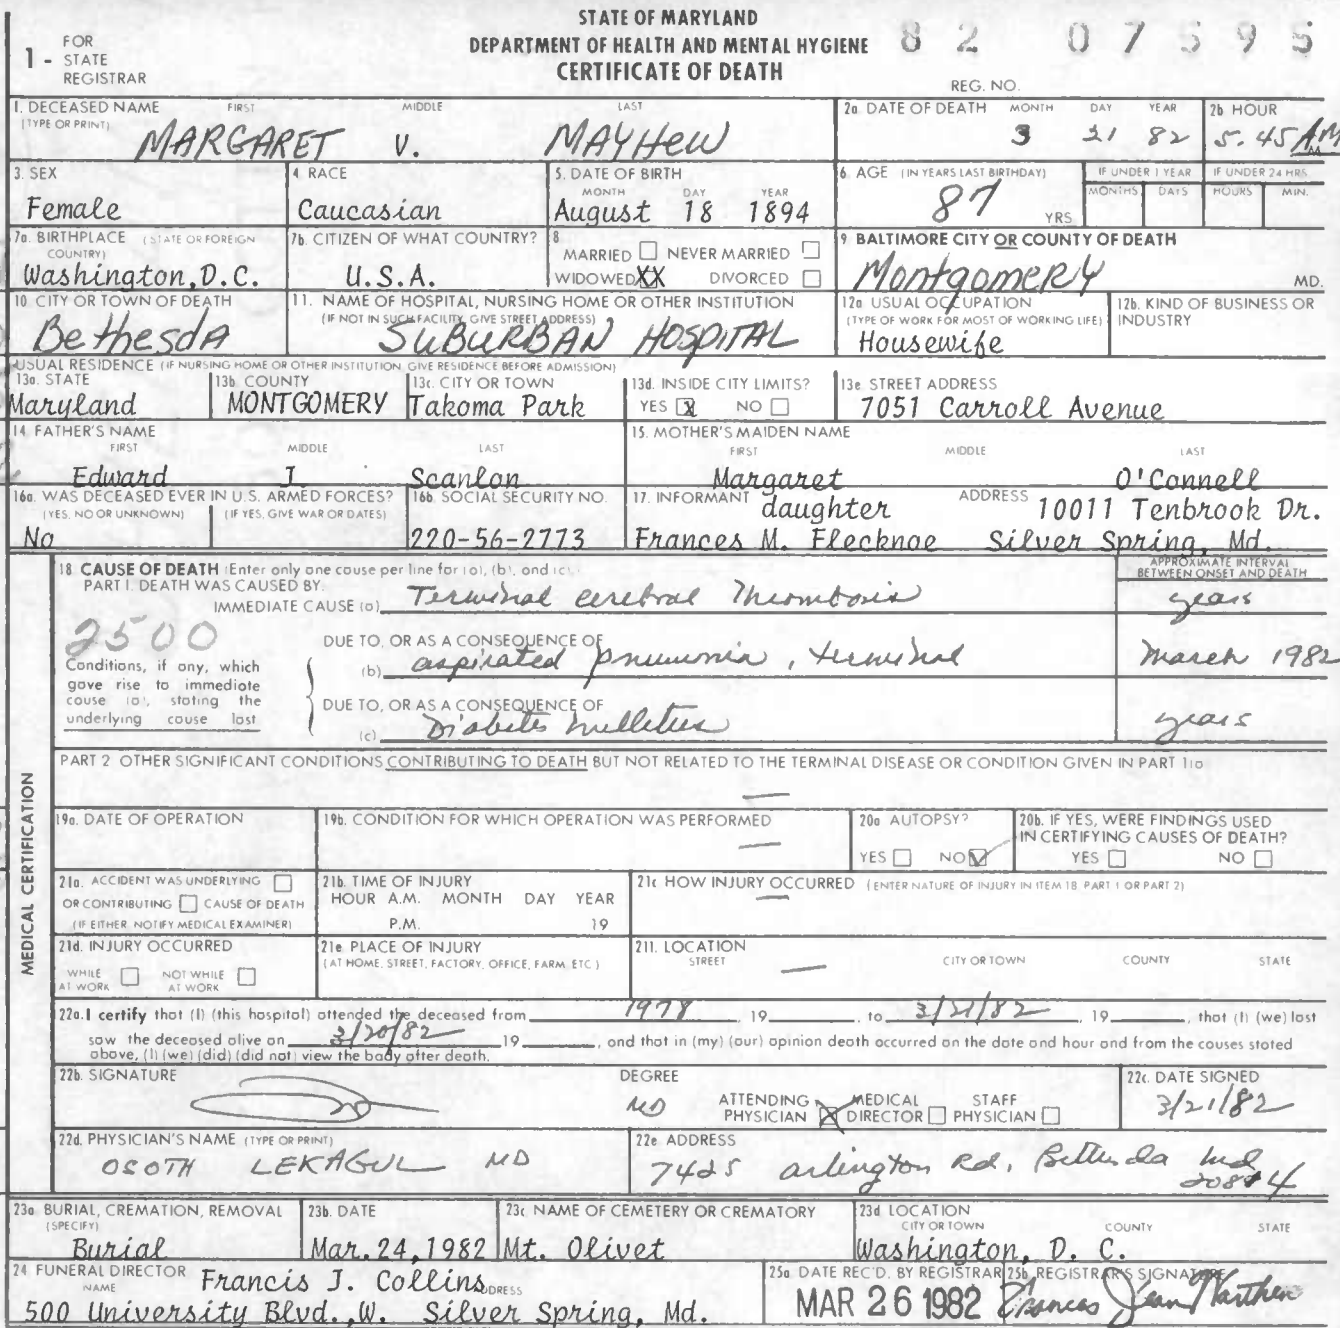 STATE OF MARYLAND
DEPARTMENT OF HEALTH AND MENTAL HYGIENE
CERTIFICATE OF DEATH
82 07595
REG. NO.
1 - FOR STATE REGISTRAR
1. DECEASED NAME FIRST MIDDLE LAST
(TYPE OR PRINT)
MARGARET V. MAYHEW
2a. DATE OF DEATH MONTH DAY YEAR
3 21 82
2b. HOUR
5.45 AM
3. SEX
Female
4. RACE
Caucasian
5. DATE OF BIRTH
MONTH DAY YEAR
August 18 1894
6. AGE (IN YEARS LAST BIRTHDAY)
87 YRS.
IF UNDER 1 YEAR
MONTHS DAYS
IF UNDER 24 HRS.
HOURS MIN.
7a. BIRTHPLACE (STATE OR FOREIGN COUNTRY)
Washington, D.C.
7b. CITIZEN OF WHAT COUNTRY?
U.S.A.
8.
MARRIED NEVER MARRIED
WIDOWED XX DIVORCED
9. BALTIMORE CITY OR COUNTY OF DEATH
Montgomery MD.
10. CITY OR TOWN OF DEATH
Bethesda
11. NAME OF HOSPITAL, NURSING HOME OR OTHER INSTITUTION
(IF NOT IN SUCH FACILITY, GIVE STREET ADDRESS)
SUBURBAN HOSPITAL
12a. USUAL OCCUPATION
(TYPE OF WORK FOR MOST OF WORKING LIFE)
Housewife
12b. KIND OF BUSINESS OR INDUSTRY
USUAL RESIDENCE (IF NURSING HOME OR OTHER INSTITUTION GIVE RESIDENCE BEFORE ADMISSION)
13a. STATE
Maryland
13b. COUNTY
MONTGOMERY
13c. CITY OR TOWN
Takoma Park
13d. INSIDE CITY LIMITS?
YES X NO
13e. STREET ADDRESS
7051 Carroll Avenue
14. FATHER'S NAME
FIRST MIDDLE LAST
Edward J. Scanlon
15. MOTHER'S MAIDEN NAME
FIRST MIDDLE LAST
Margaret O'Connell
16a. WAS DECEASED EVER IN U.S. ARMED FORCES?
(YES, NO OR UNKNOWN) (IF YES, GIVE WAR OR DATES)
No
16b. SOCIAL SECURITY NO.
220-56-2773
17. INFORMANT daughter ADDRESS 10011 Tenbrook Dr.
Frances M. Flecknoe Silver Spring, Md.
MEDICAL CERTIFICATION
18. CAUSE OF DEATH (Enter only one cause per line for (a), (b), and (c).
APPROXIMATE INTERVAL BETWEEN ONSET AND DEATH
PART I. DEATH WAS CAUSED BY:
IMMEDIATE CAUSE (a) Terminal cerebral Thrombosis years
2500
Conditions, if any, which gave rise to immediate cause (a), stating the underlying cause last
DUE TO, OR AS A CONSEQUENCE OF
(b) aspirated pneumonia, terminal March 1982
DUE TO, OR AS A CONSEQUENCE OF
(c) Diabetes mellitus years
PART 2 OTHER SIGNIFICANT CONDITIONS CONTRIBUTING TO DEATH BUT NOT RELATED TO THE TERMINAL DISEASE OR CONDITION GIVEN IN PART 1(a)
—
19a. DATE OF OPERATION
19b. CONDITION FOR WHICH OPERATION WAS PERFORMED
—
20a AUTOPSY?
YES NO
20b. IF YES, WERE FINDINGS USED IN CERTIFYING CAUSES OF DEATH?
YES NO
21a. ACCIDENT WAS UNDERLYING
OR CONTRIBUTING CAUSE OF DEATH
(IF EITHER, NOTIFY MEDICAL EXAMINER)
21b. TIME OF INJURY
HOUR A.M. MONTH DAY YEAR
P.M. 19
21c HOW INJURY OCCURRED (ENTER NATURE OF INJURY IN ITEM 18 PART 1 OR PART 2)
—
21d. INJURY OCCURRED
WHILE AT WORK NOT WHILE AT WORK
21e. PLACE OF INJURY
(AT HOME, STREET, FACTORY, OFFICE, FARM, ETC.)
21f. LOCATION
STREET CITY OR TOWN COUNTY STATE
—
22a. I certify that (I) (this hospital) attended the deceased from 1978, 19 to 3/21/82, 19, that (I) (we) last
saw the deceased alive on 3/20/82 19, and that in (my) (our) opinion death occurred on the date and hour and from the causes stated
above, (I) (we) (did) (did not) view the body after death.
22b. SIGNATURE
DEGREE
MD
ATTENDING PHYSICIAN X MEDICAL DIRECTOR STAFF PHYSICIAN
22c. DATE SIGNED
3/21/82
22d. PHYSICIAN'S NAME (TYPE OR PRINT)
OSOTH LEKAGUL MD
22e. ADDRESS
7425 arlington Rd. Bethesda Md
20814
23a. BURIAL, CREMATION, REMOVAL
(SPECIFY)
Burial
23b. DATE
Mar. 24, 1982
23c. NAME OF CEMETERY OR CREMATORY
Mt. Olivet
23d. LOCATION
CITY OR TOWN COUNTY STATE
Washington, D. C.
24. FUNERAL DIRECTOR
NAME Francis J. Collins ADDRESS
500 University Blvd., W. Silver Spring, Md.
25a. DATE REC'D. BY REGISTRAR
MAR 26 1982
25b. REGISTRAR'S SIGNATURE
Frances Jean